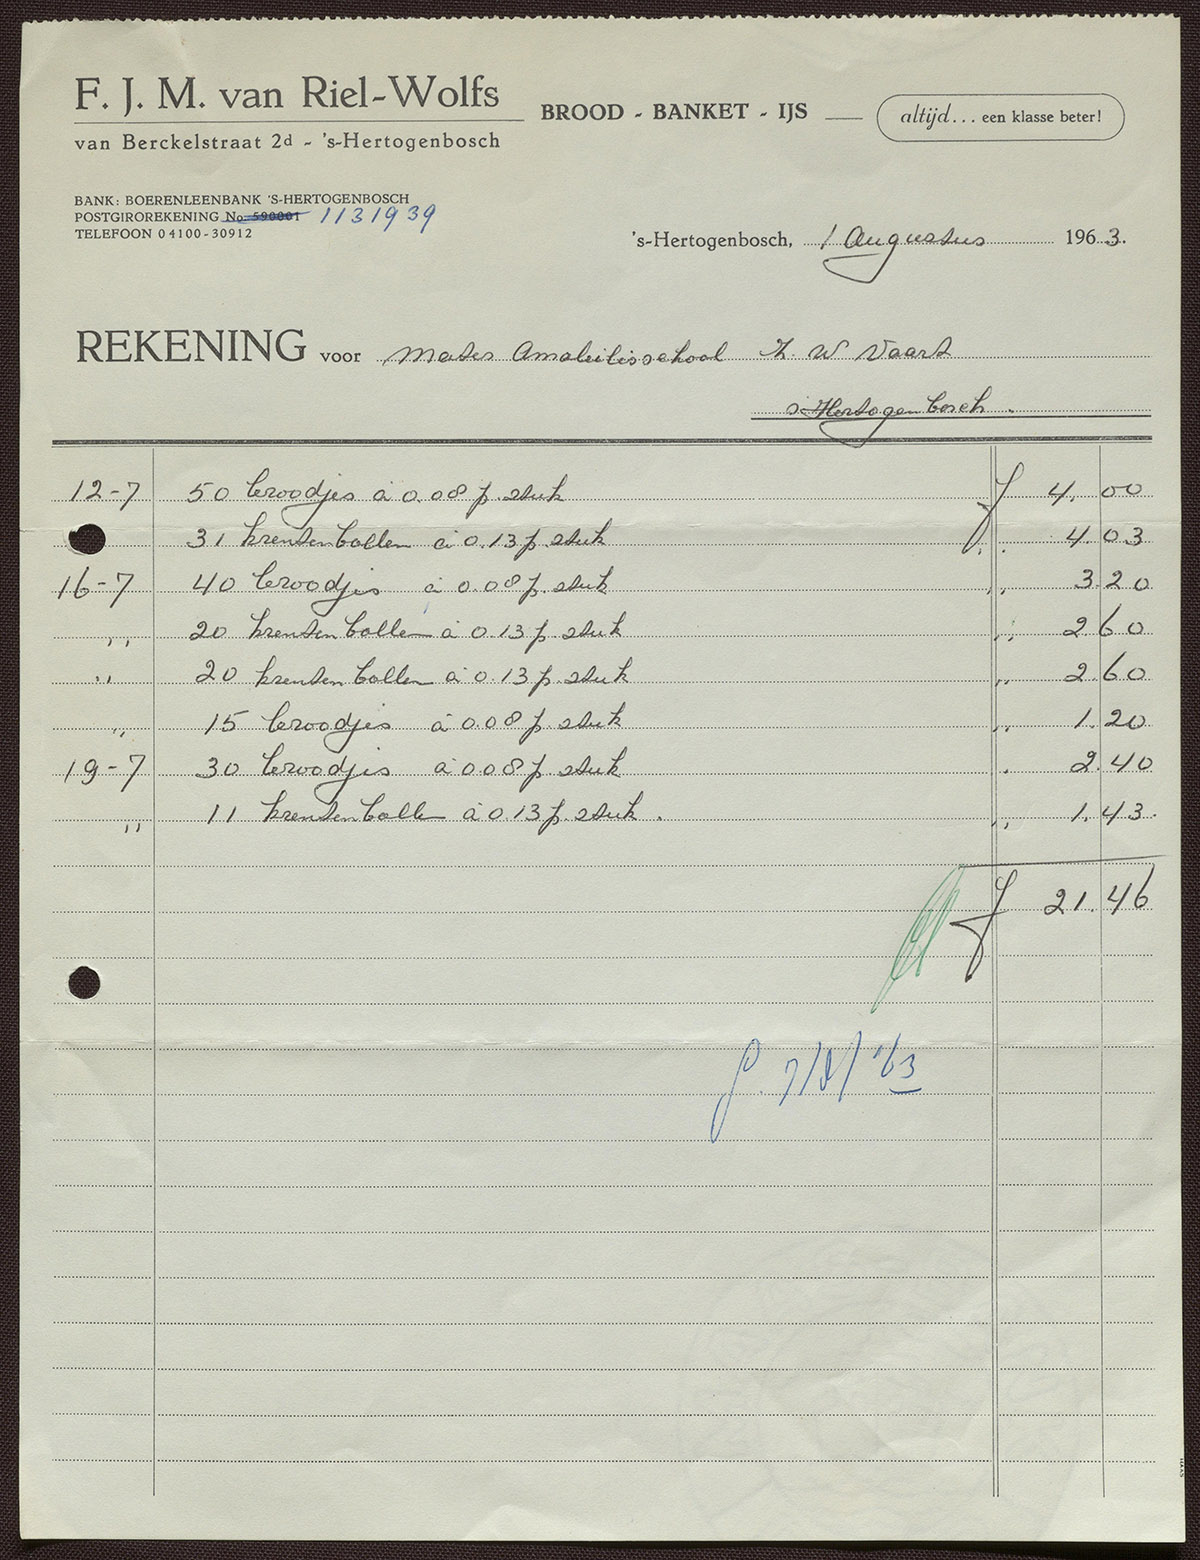 F. J. M. van Riel-Wolfs
BROOD - BANKET - IJS
altijd... een klasse beter!
van Berckelstraat 2d - 's-Hertogenbosch
BANK: BOERENLEENBANK 'S-HERTOGENBOSCH
POSTGIROREKENING No. 590001 1131939
TELEFOON 04100-30912
's-Hertogenbosch, 1 Augustus 1963.
REKENING voor Mater Amabilisschool Z. W Vaart
s Hertogenbosch.
12-7 50 broodjes à 0.08 p. stuk f 4.00
31 krentenbollen à 0.13 p. stuk ,, 4.03
16-7 40 broodjes à 0.08 p. stuk ,, 3.20
,, 20 krentenbollen à 0.13 p. stuk ,, 2.60
,, 20 krentenbollen à 0.13 p. stuk ,, 2.60
,, 15 broodjes à 0.08 p. stuk ,, 1.20
19-7 30 broodjes à 0.08 p. stuk ,, 2.40
,, 11 krentenbollen à 0.13 p. stuk. ,, 1.43.
f 21.46
7/8/'63
HAAS